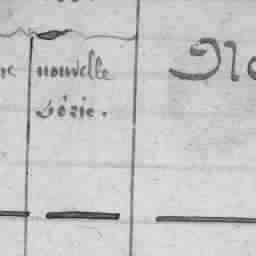 nouvelle
Série.